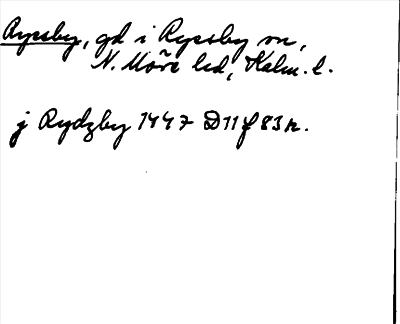 Ryssby, gd i Ryssby sn,
N. Möre hd, Kalm. l.
j Rydzby 1447 D11 f 83r.